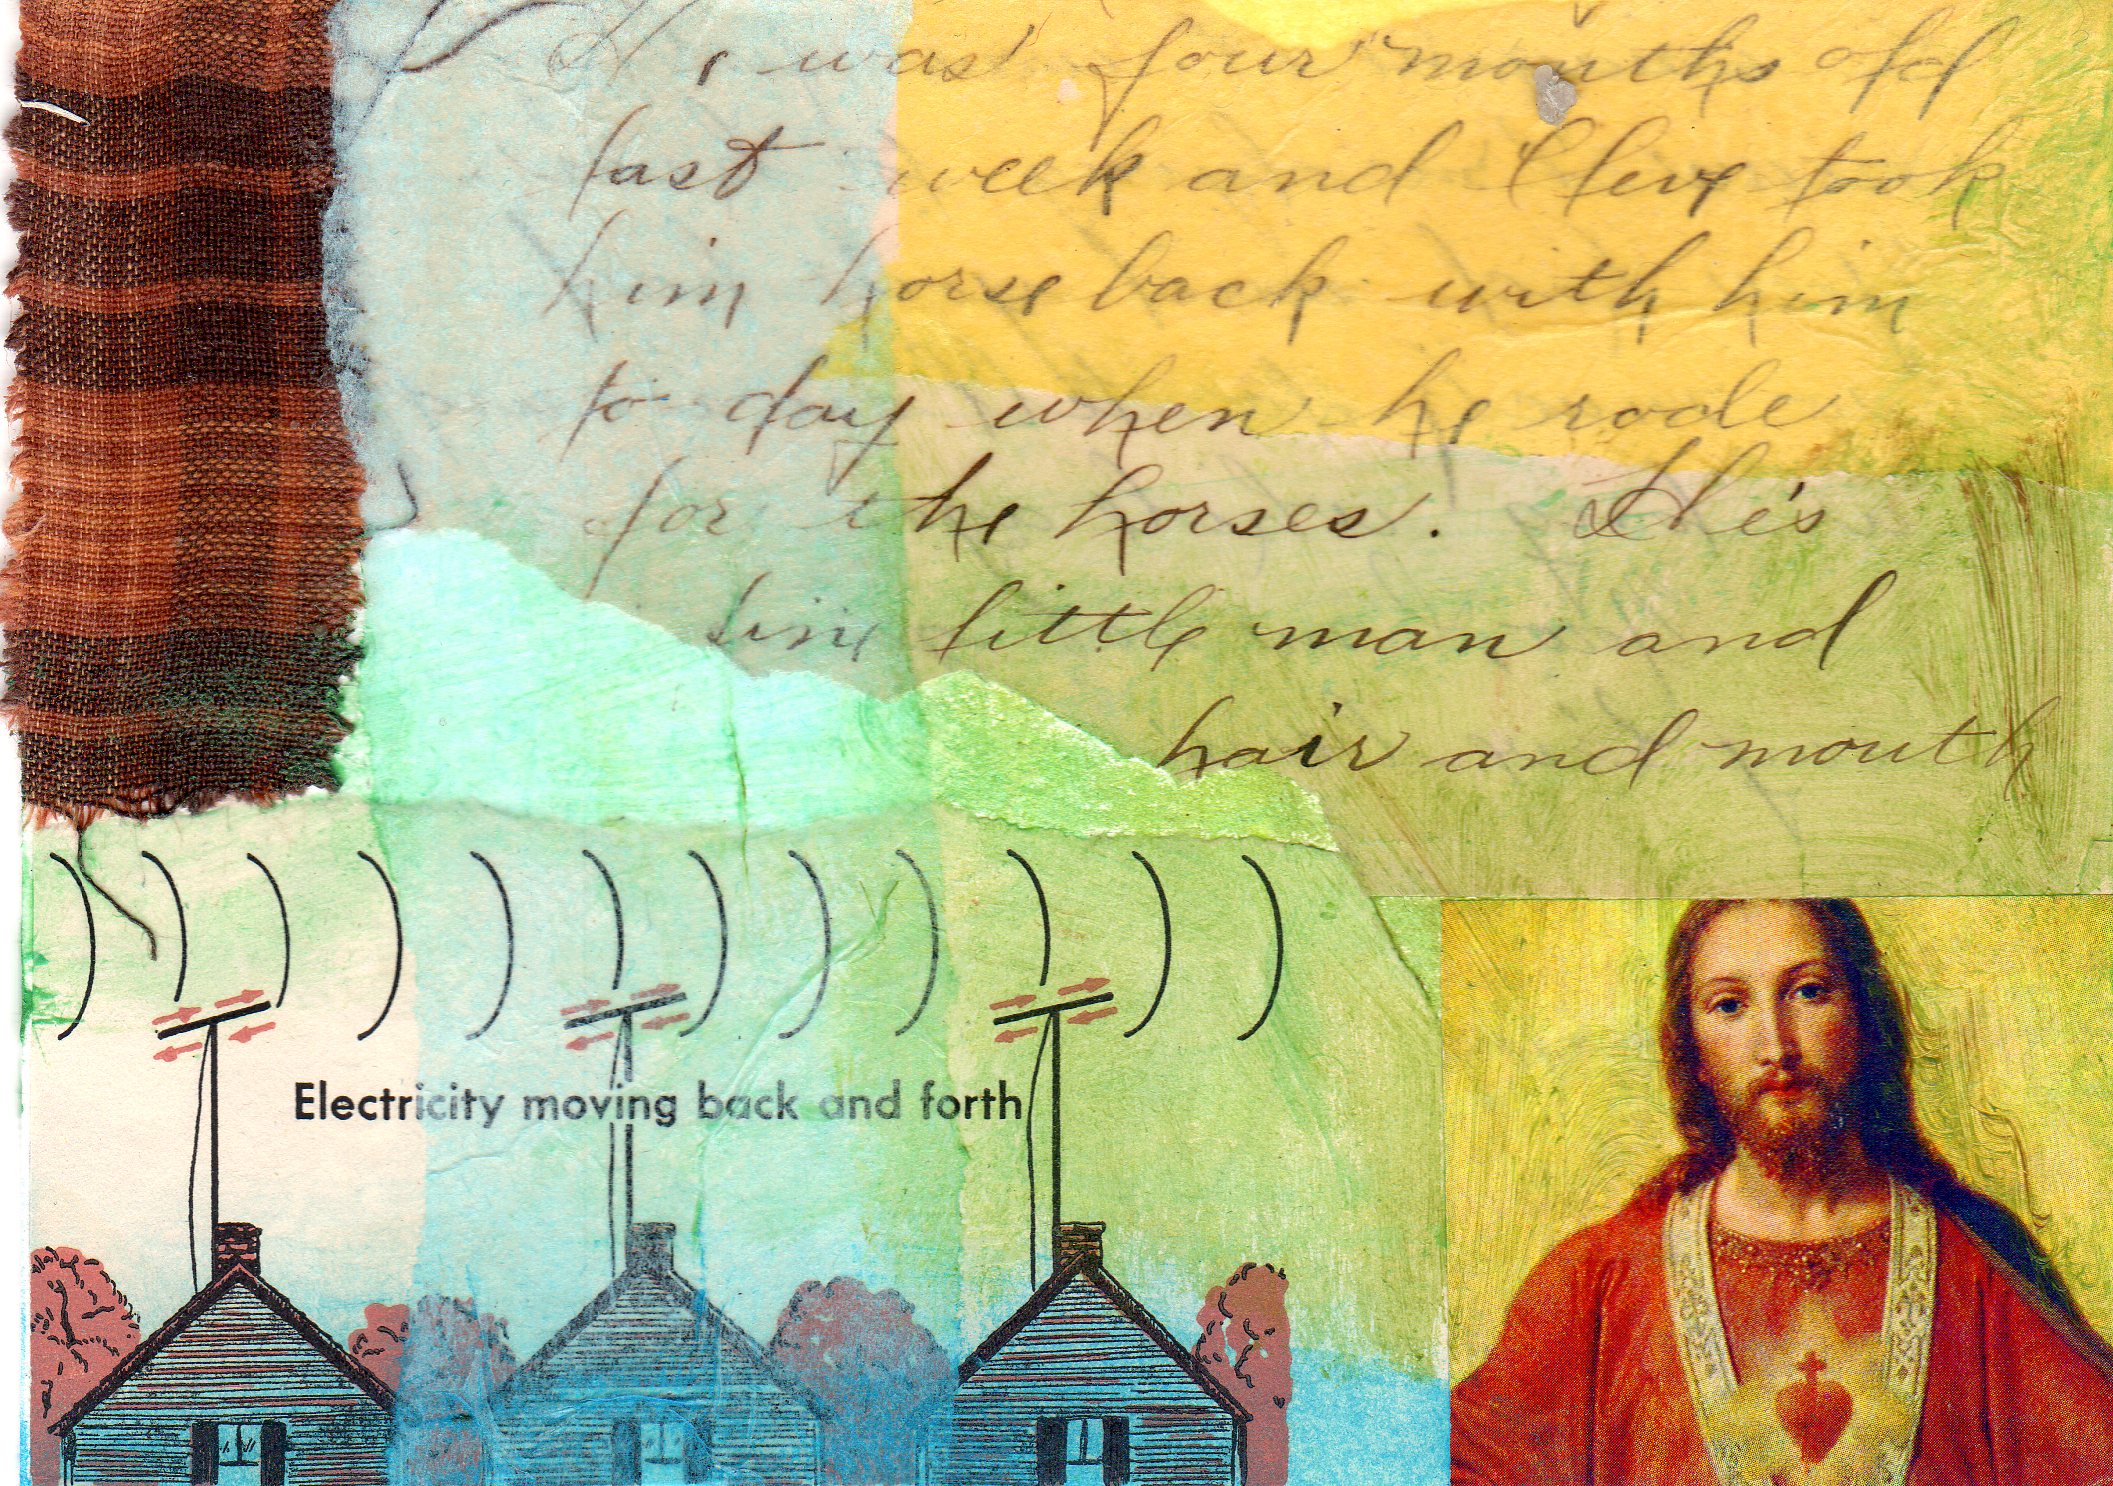 He was four months old
last week and Cleve took
him horse back with him
to day when he rode
for the horses. This
fine little man and
hair and mouth
Electricity moving back and forth